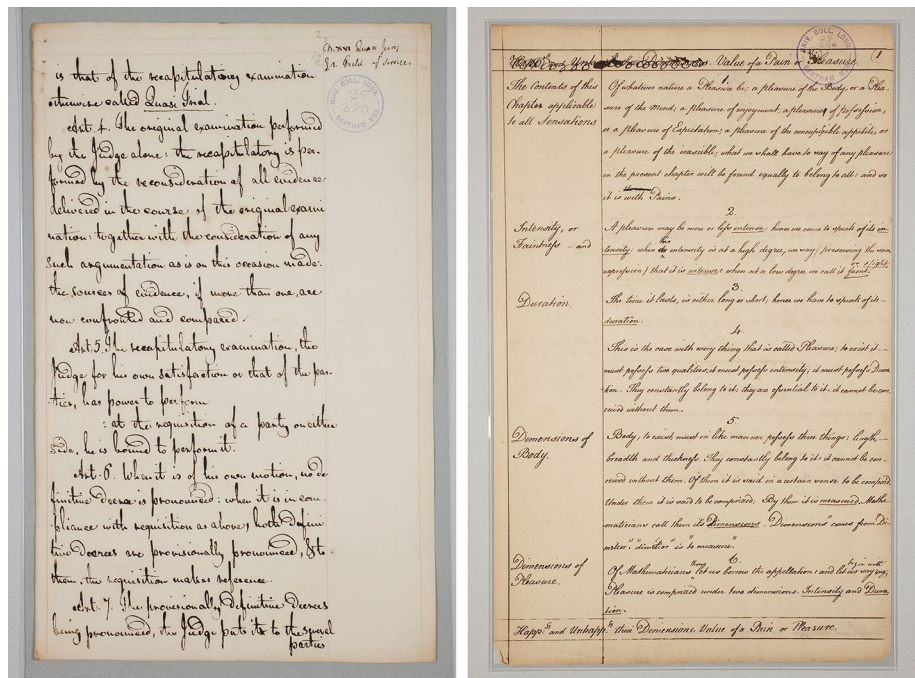 Ch. XVI Quasi Jury
§. Field of Service.
is that of the recapitulatory examination
otherwise called Quasi Trial.
Art. 4. The original examination performed
by the Judge alone: the recapitulatory is per-
formed by the reconsideration of all evidence
delivered in the course of the original exami
nation: together with the consideration of any
such argumentation as is on this occasion made:
the sources of evidence, if more than one, are
now confronted and compared.
Art. 5. The recapitulatory examination, the
Judge for his own satisfaction or that of the par-
ties, has power to perform
: at the requisition of a party on either
side, he is bound to perform it.
Art. 6. When it is of his own motion, no de
finitive decree is pronounced: when it is in com-
pliance with requisition as above, both defini
tive Decrees are provisionally pronounced, & to
them, the requisition makes reference.
Art. 7. The provisionally definitive Decrees
being pronounced, the Judge puts it to the several
parties
UNIV. COLL. LOND.
BENTHAM MSS
Value of a Pain or Pleasure. 1
The contents of this
Chapter applicable
to all Sensations
1.
Of whatever nature a Pleasure be; a pleasure of the Body, or a Plea-
sure of the Mind; a pleasure of enjoyment, a pleasure of possession,
or a pleasure of Expectation; a pleasure of the concupiscible appetite, or
a pleasure of the irascible; what we shall have to say of any pleasure
in the present chapter will be found equally to belong to all: and so
it is with Pains.
Intensity, or
Faintness - and
2.
A pleasure may be more or less intense: hence we come to speak of its in-
tensity: when this intensity is at a high degree, we say, (preserving the same
expression) that it is intense: when at a low degree we call it faint. or slight
Duration.
3.
The time it lasts, is either long or short; hence we have to speak of its
duration.
4.
This is the case with every thing that is called Pleasure; to exist it
must possess two qualities; it must possess intensity; it must possess Dura
tion. They constantly belong to it; they are essential to it: it cannot be con-
ceived without them.
Dimensions of
Body.
5.
Body, to exist must in like manner possess three things: length
breadth and thickness. They constantly belong to it: it cannot be con-
ceived without them. Of them it is said in a certain sense to be composed
Under them it is said to be comprized; By them it is measured. Mathe-
maticians call them its Dimensions. "Dimensions" comes from "Di-
metior": "dimetior" is "to measure".
Dimensions of
Pleasure.
6.
Of Mathematicians then let us borrow the appellation: and let us begin with saying,
Pleasure is comprized under two dimensions. Intensity and Dura
tion.
Happ.ss and Unhapp.ss their Dimensions. Value of a Pain or Pleasure.
UNIV. COLL. LOND.
BENTHAM MSS